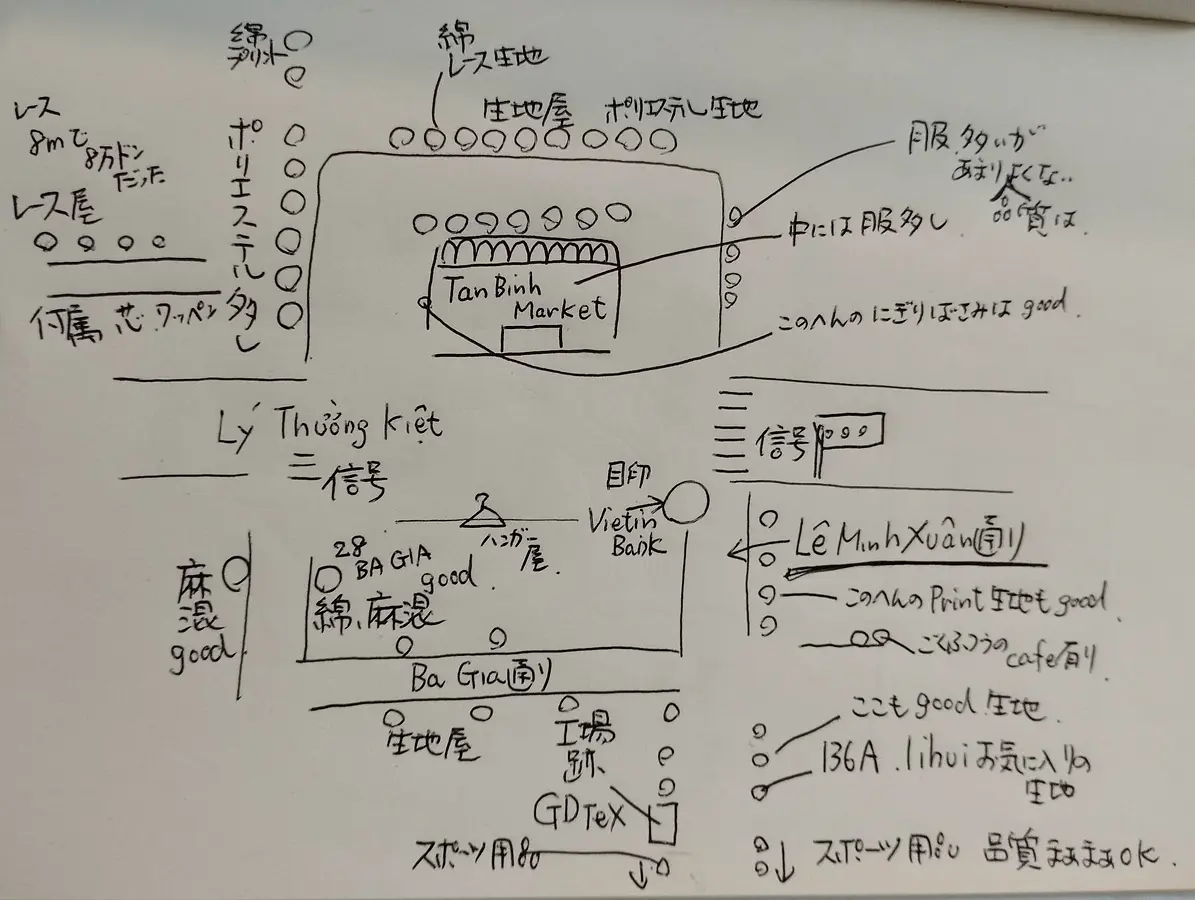 綿
プリント
綿
レース生地
生地屋 ポリエステル生地
レース
8mで
8万ドン
だった
レース屋
ポリエステル多し
付属 芯 ワッペン
服多いが
あまりよくない
品質は
中には服多し
Tan Binh
Market
このへんのにぎりばさみは good.
Lý Thường Kiệt
信号
信号
目印
Vietin
Bank
ハンガー
屋.
28
BA GIA
good
綿、麻混
麻
混
good
Lê Minh Xuân通り
このへんの Print 生地も good
ごくふつうの
cafe有り
Ba Gia通り
生地屋
工場
跡
GDTex
スポーツ用
ここも good 生地
136A . lihui お気に入りの
生地
スポーツ用 品質まあまあOK.